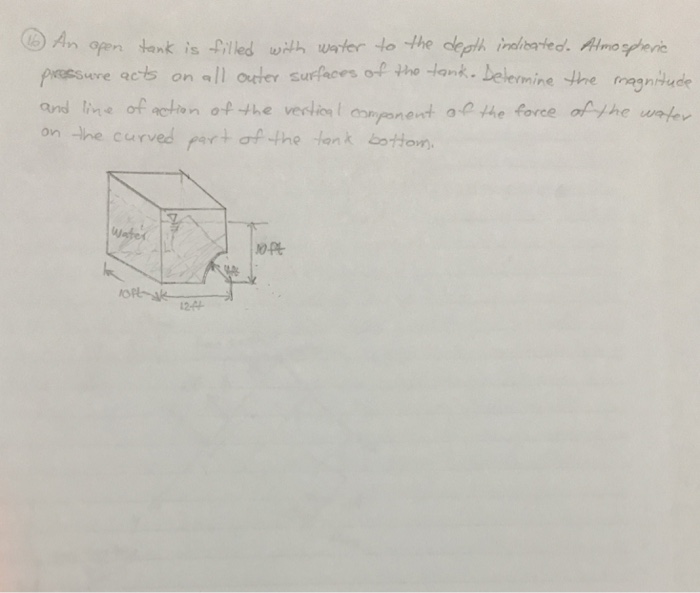 16 An open tank is filled with water to the depth indicated. Atmospheric
pressure acts on all outer surfaces of the tank. Determine the magnitude
and line of action of the vertical component of the force of the water
on the curved part of the tank bottom.
water
10ft
4ft
10ft
12ft